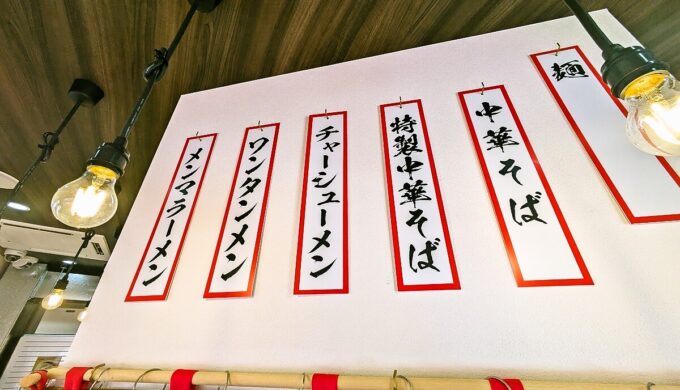 麺
中華そば
特製中華そば
チャーシューメン
ワンタンメン
メンマラーメン